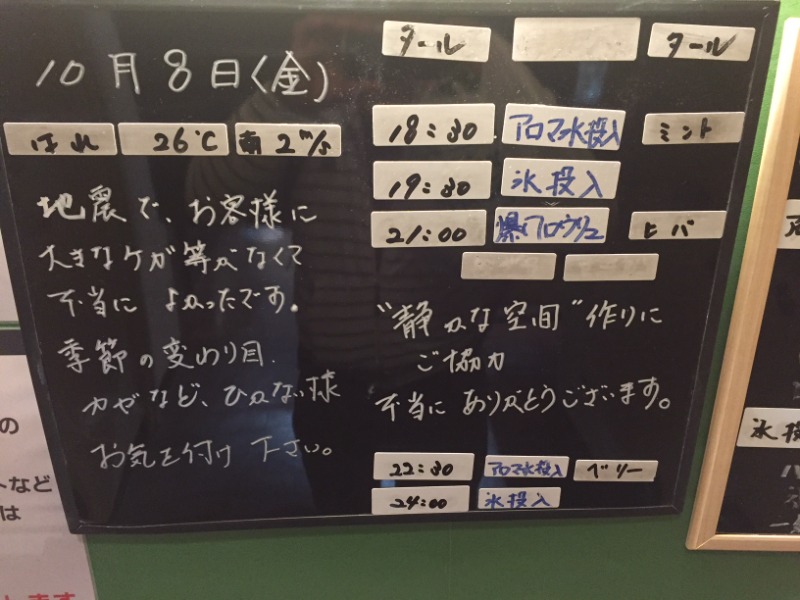 10月8日(金)
はれ 26℃ 南 2m/s
地震で、お客様に
大きなケガ等がなくて
本当によかったです。
季節の変わり目.
カゼなど、ひかない様
お気を付け下さい。
タール タール
18:30 アロマ水投入 ミント
19:30 氷投入
21:00 爆アロウリュ ヒバ
"静かな空間"作りに
ご協力
本当にありがとうございます。
22:30 アロマ水投入 ベリー
24:00 氷投入
の
トなど
は
します
氷投